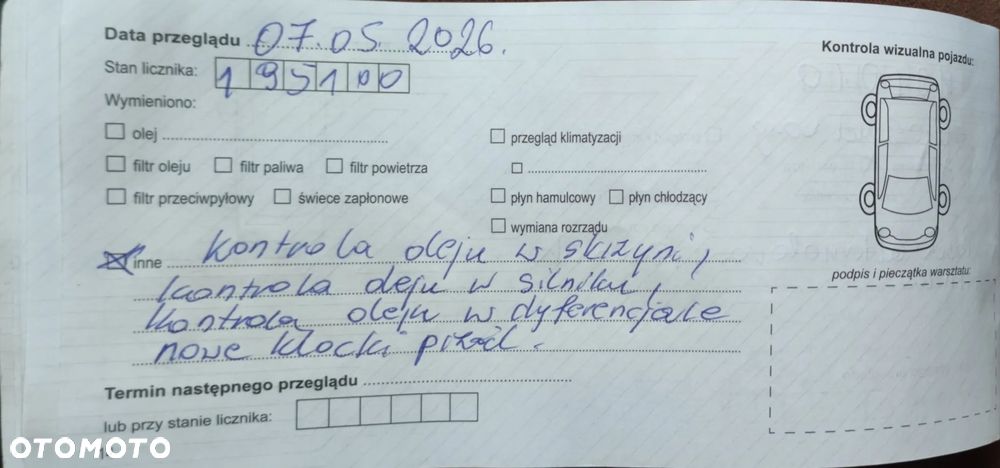 Data przeglądu 07.05.2026.
Kontrola wizualna pojazdu:
Stan licznika: 195100
Wymieniono:
olej
przegląd klimatyzacji
filtr oleju filtr paliwa filtr powietrza
filtr przeciwpyłowy świece zapłonowe
płyn hamulcowy płyn chłodzący
wymiana rozrządu
inne kontrola oleju w skrzyni,
kontrola oleju w silniku,
kontrola oleju w dyferencjale
nowe klocki przód.
podpis i pieczątka warsztatu:
Termin następnego przeglądu
lub przy stanie licznika:
OTOMOTO